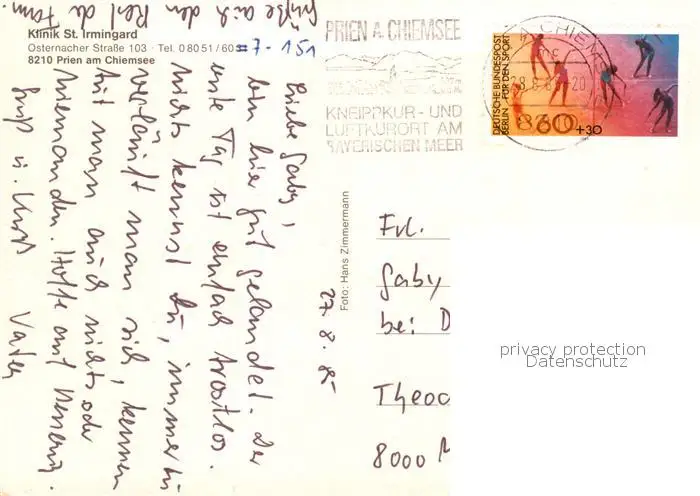 Grüße auch den Rest der Fam.
Klinik St. Irmingard
Osternacher Straße 103 · Tel. 0 80 51 / 60 = 7 - 151
8210 Prien am Chiemsee
Liebe Gaby,
bin hier gut gelandet. Der
erste Tag ist einfach trostlos.
Nichts kennst Du, immer
verläuft man sich, kennen
tut man auch nichts oder
niemanden. Hoffe auf Besserung.
Gruß u. Kuß Vater
27.8.85
Foto: Hans Zimmermann
PRIEN A. CHIEMSEE
KNEIPPKUR- UND
LUFTKURORT AM
BAYERISCHEN MEER
DEUTSCHE BUNDESPOST
BERLIN FÜR DEN SPORT
60 +30
8210
Frl.
Gaby
bei: D
Theod
8000 M
privacy protection
Datenschutz